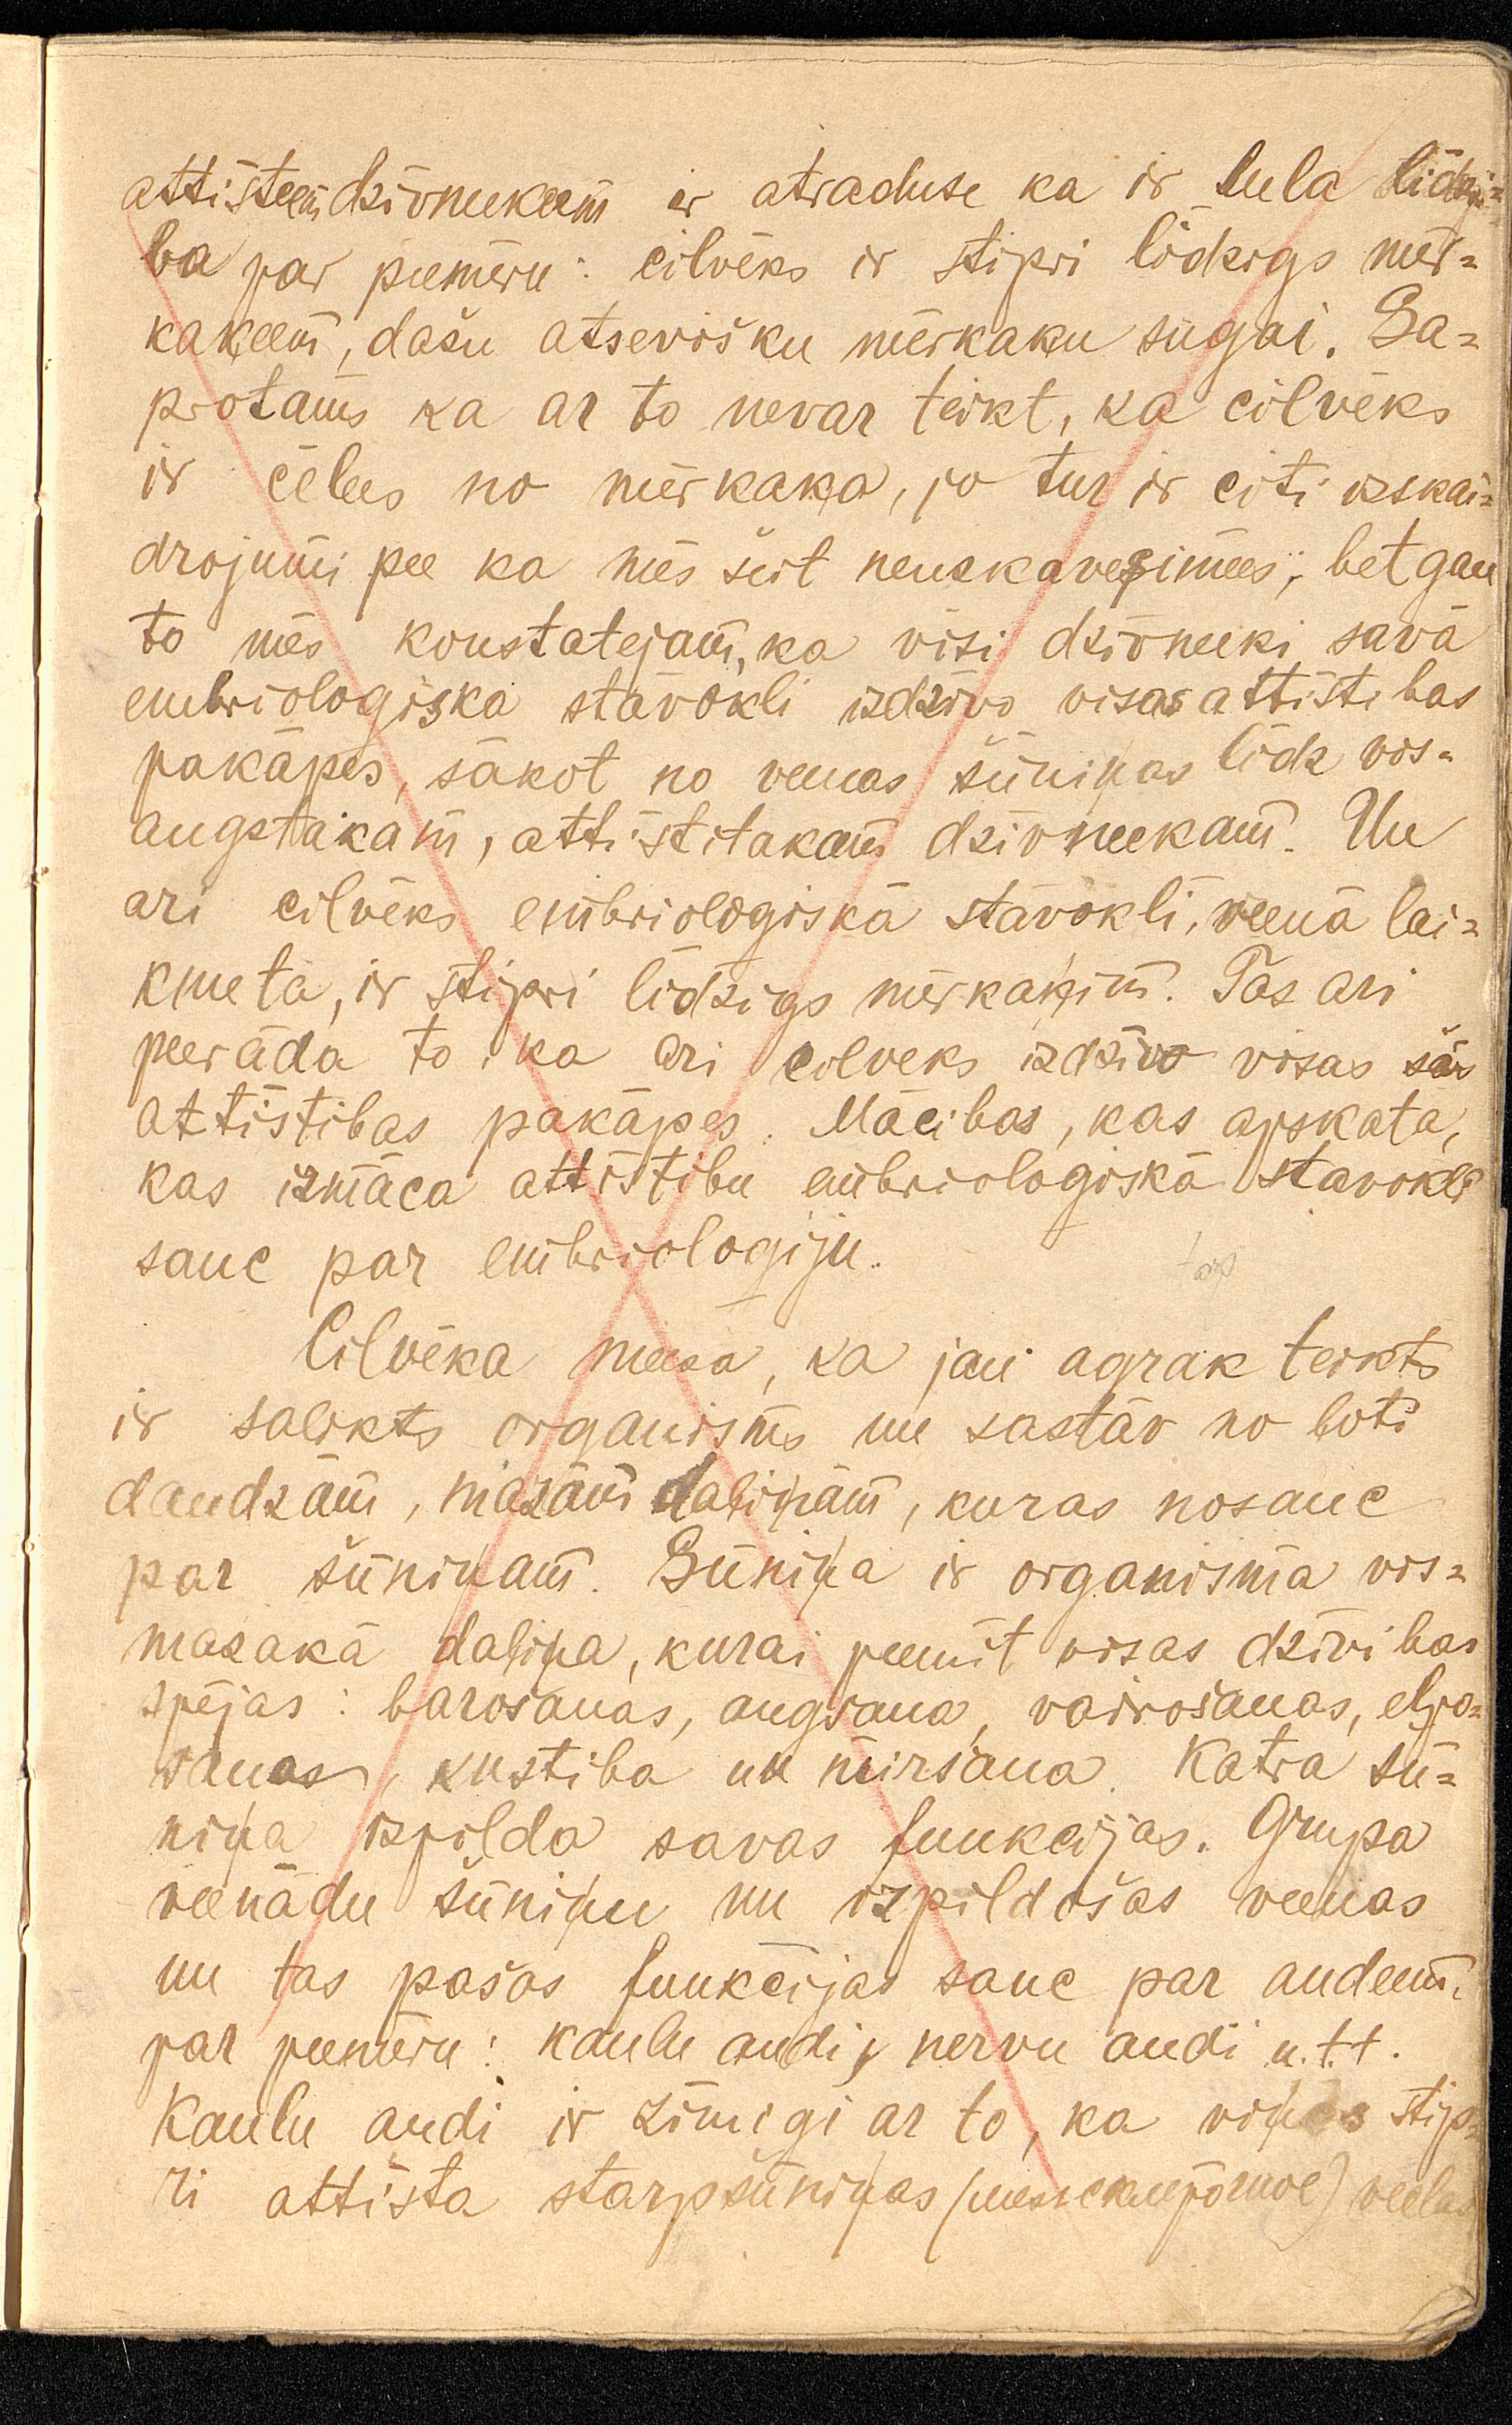 attisteem dzīvneekeem ir atraduse ka ir leela līdzi=
ba par peemēru: cilvēks ir stipri līdzigs mēr=
kaķeem, dašu atsevišku mērkaķu sugai. Sa=
protams ka ar to nevar teikt, ka cilvēks
ir cēlees no mērkaķa, jo tur ir citi izskai=
drojumi pee ka mēs šeit neuzkavesimees, bet gan
to mēs konstatejam, ka visi dzīvneeki savā
embriologiska stāvokli izdzīvo visas attīstibas
pakāpes, sākot no veenas šūniņas līdz vis=
augstakam, attīstitakam dzīvneekam. Un
ari cilvēks embriologiskā stāvoklī, veenā lai=
kmetā, ir stipri līdzigs mērkaķim. Tas ari
peerāda to ka ari cilveks izdzīvo visas šās
attīstibas pakāpes. Mācibas, kas apskata,
kas izmāca attīstibu embriologiskā stavokli
sauc par embriologiju.
Cilvēka meesa, ka jau agrak teikts
ir salikts organisms un sastāv no ļoti
daudzām, mazām daļiņām, kuras nosauc
par šūniņam. Šūniņa ir organisma vis=
mazakā daļiņa, kurai peemīt visas dzīvibas
spējas: barošanas, augšana, vairošanas, elpo=
šanas, kustiba un miršana. Katra šū=
niņa izpilda savas funkcijas. Grupa
veenādu šūniņu un izpildošas veenas
un tas pašas funkcijas sauc par audeem,
par peemēru: kaulu audi, nervu audi u.t.t.
Kaulu audi ir zīmigi ar to, ka viņas stip=
ri attīsta starpšūniņas veelas